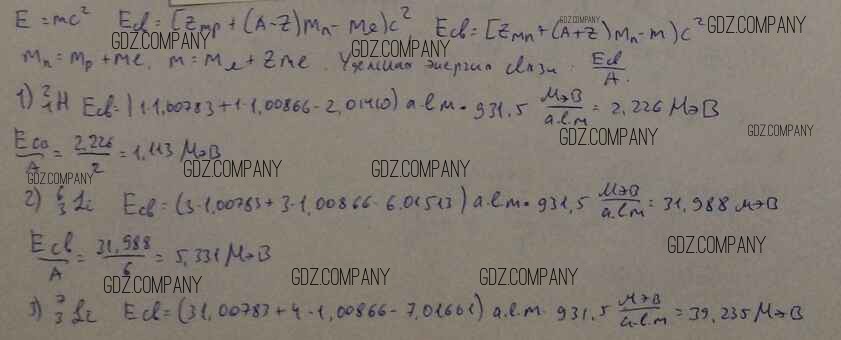 E = mc² Eсв = [Zmp + (A-Z)mn - mя]c² Eсв = [Zmн + (A+Z)mn - m)c²
GDZ.COMPANY GDZ.COMPANY GDZ.COMPANY GDZ.COMPANY
mн = mp + me, m = mя + Zme. Удельная энергия связи: Eсв/A.
1) ²₁H Eсв = (1·1,00783 + 1·1,00866 - 2,01410) а.е.м · 931,5 МэВ/а.е.м = 2,226 МэВ
GDZ.COMPANY GDZ.COMPANY
Eсв/A = 2,226/2 = 1,113 МэВ
GDZ.COMPANY GDZ.COMPANY GDZ.COMPANY
2) ⁶₃Li Eсв = (3·1,00783 + 3·1,00866 - 6,01513) а.е.м · 931,5 МэВ/а.е.м = 31,988 МэВ
Eсв/A = 31,988/6 = 5,331 МэВ
GDZ.COMPANY
GDZ.COMPANY GDZ.COMPANY GDZ.COMPANY
3) ⁷₃Li Eсв = (31,00783 + 4·1,00866 - 7,01601) а.е.м · 931,5 МэВ/а.е.м = 39,235 МэВ